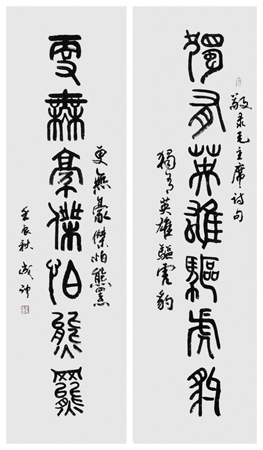 敬录毛主席诗句
獨有英雄驅虎豹
獨有英雄驅虎豹
更無豪傑怕熊羆
更無豪傑怕熊羆
壬辰秋